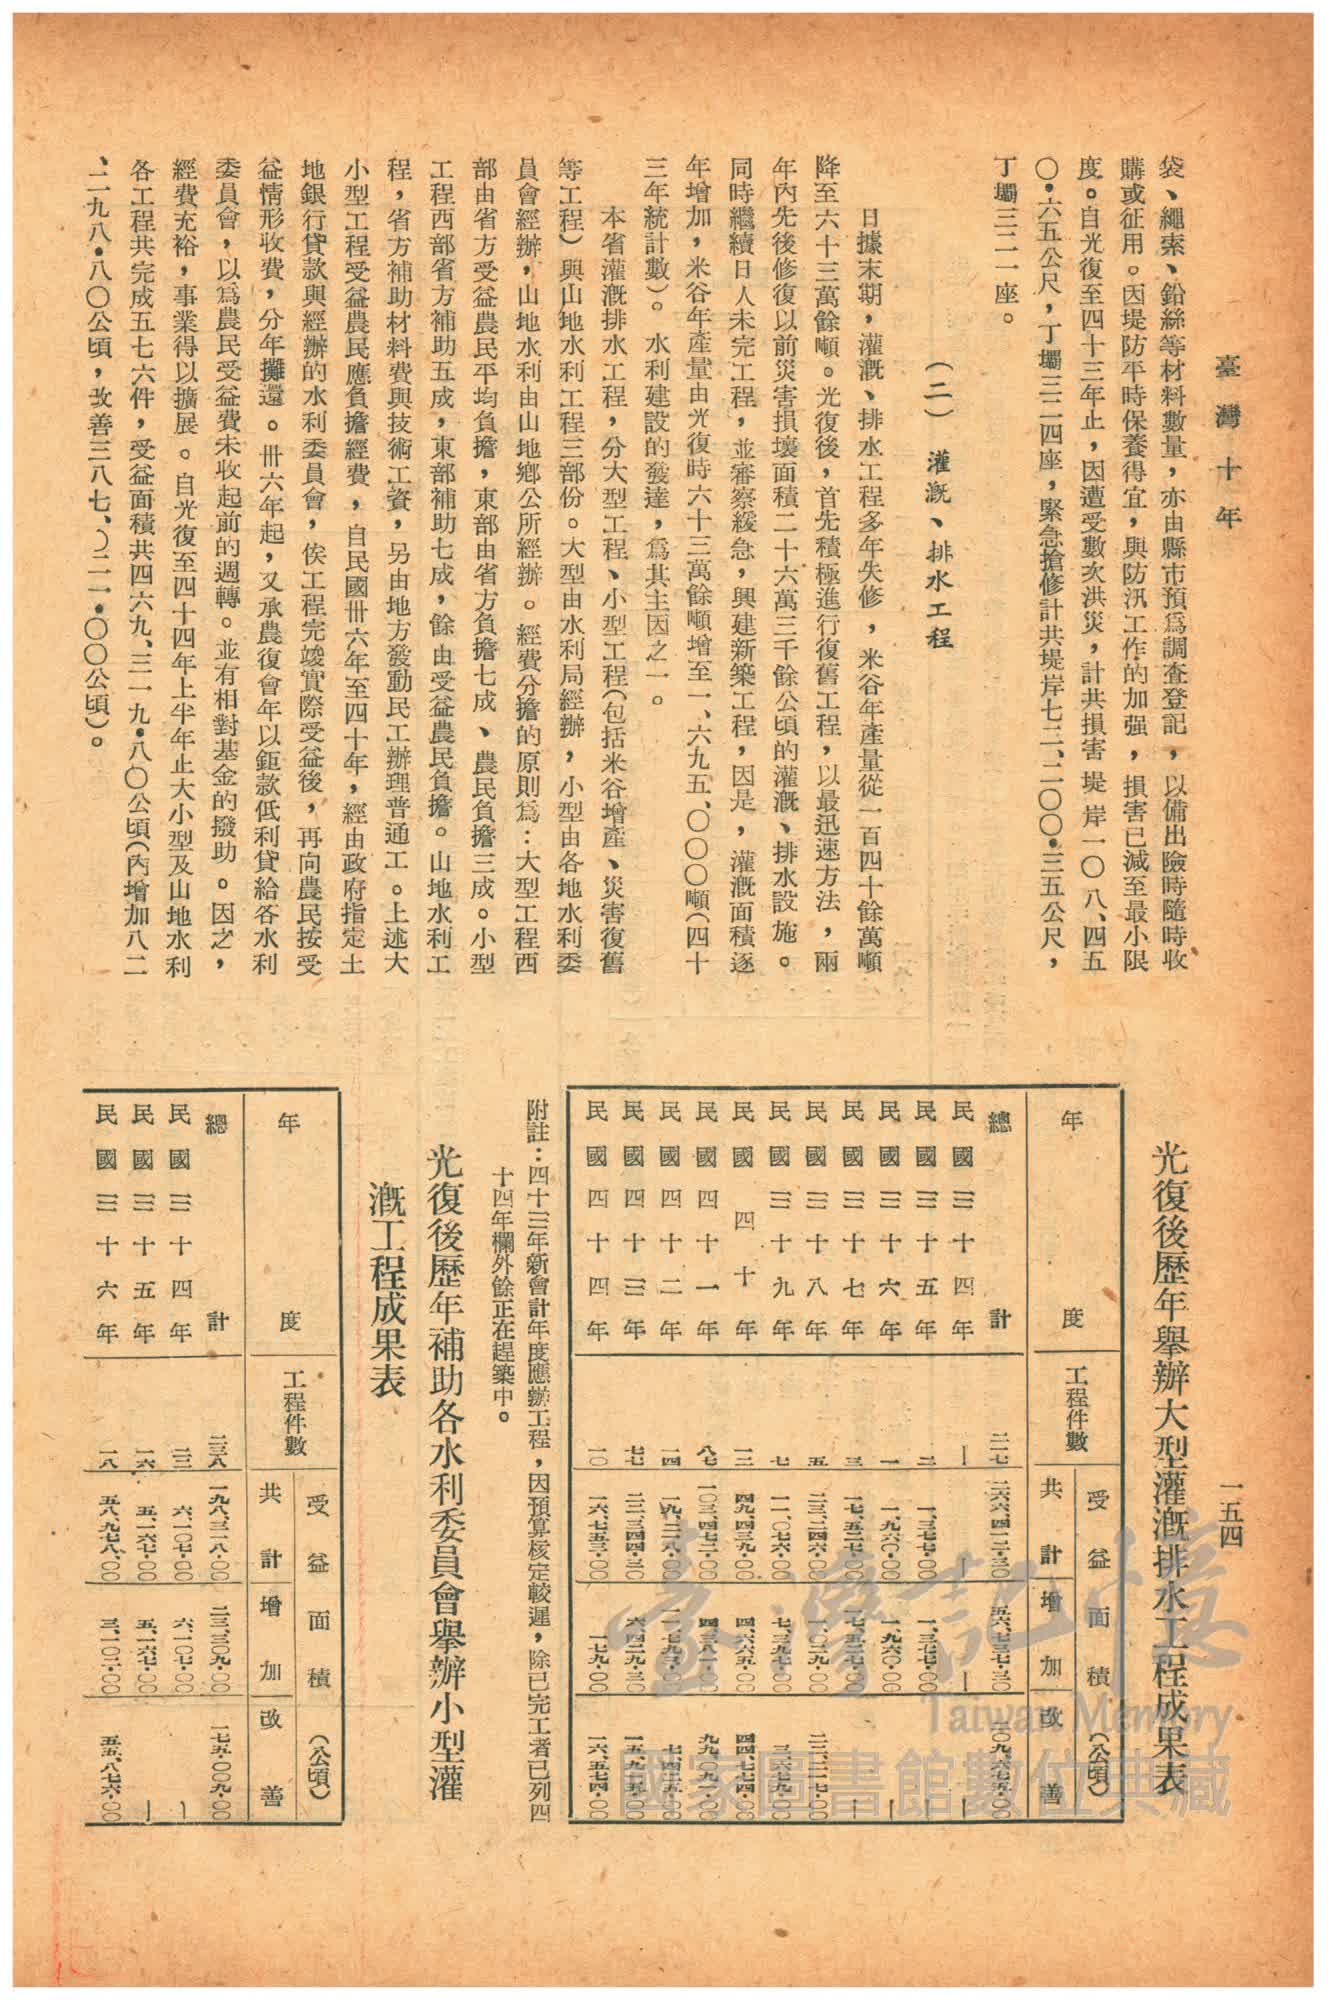 臺灣十年
一五四
袋、繩索、鉛絲等材料數量，亦由縣市預爲調查登記，以備出險時隨時收
購或征用。因堤防平時保養得宜，與防汛工作的加强，損害已減至最小限
度。自光復至四十三年止，因遭受數次洪災，計共損害堤岸一〇八、四五
〇・六五公尺，丁壩三二四座，緊急搶修計共堤岸七二、二〇〇・三五公尺，
丁壩三二一座。
（二）灌漑、排水工程
日據末期，灌漑、排水工程多年失修，米谷年產量從一百四十餘萬噸
降至六十三萬餘噸。光復後，首先積極進行復舊工程，以最迅速方法，兩
年內先後修復以前災害損壞面積二十六萬三千餘公頃的灌漑、排水設施。
同時繼續日人未完工程，並審察緩急，興建新築工程，因是，灌漑面積逐
年增加，米谷年產量由光復時六十三萬餘噸增至一、六九五、〇〇〇噸（四十
三年統計數）。水利建設的發達，爲其主因之一。
本省灌漑排水工程，分大型工程、小型工程（包括米谷增產、災害復舊
等工程）與山地水利工程三部份。大型由水利局經辦，小型由各地水利委
員會經辦，山地水利由山地鄉公所經辦。經費分擔的原則爲：大型工程西
部由省方受益農民平均負擔，東部由省方負擔七成、農民負擔三成。小型
工程西部省方補助五成，東部補助七成，餘由受益農民負擔。山地水利工
程，省方補助材料費與技術工資，另由地方發動民工辦理普通工。上述大
小型工程受益農民應負擔經費，自民國卅六年至四十年，經由政府指定土
地銀行貸款與經辦的水利委員會，俟工程完竣實際受益後，再向農民按受
益情形收費，分年攤還。卅六年起，又承農復會年以鉅款低利貸給各水利
委員會，以爲農民受益費未收起前的週轉。並有相對基金的撥助。因之，
經費充裕，事業得以擴展。自光復至四十四年上半年止大小型及山地水利
各工程共完成五七六件，受益面積共四六九、三一九・八〇公頃（內增加八二
、二九八・八〇公頃，改善三八七、〇二一・〇〇公頃）。
光復後歷年舉辦大型灌漑排水工程成果表
年度
工程件數
受益面積（公頃）
共計
增加
改善
總計
民國三十四年
民國三十五年
民國三十六年
民國三十七年
民國三十八年
民國三十九年
民國四十年
民國四十一年
民國四十二年
民國四十三年
民國四十四年
附註：四十三年新會計年度應辦工程，因預算核定較遲，除已完工者已列四
十四年欄外餘正在趕築中。
光復後歷年補助各水利委員會舉辦小型灌
漑工程成果表
年度
工程件數
受益面積（公頃）
共計
增加
改善
總計 二三八 一九八、三一八・〇〇 二三、三〇九・〇〇 一七五、〇〇九・〇〇
民國三十四年 六、一〇七・〇〇 六、一〇七・〇〇 ―
民國三十五年 一六 五、一六七・〇〇 五、一六七・〇〇 ―
民國三十六年 一八 五八、九七八・〇〇 三、一〇二・〇〇 五五、八七六・〇〇
臺灣記憶
Taiwan Memory
國家圖書館數位典藏